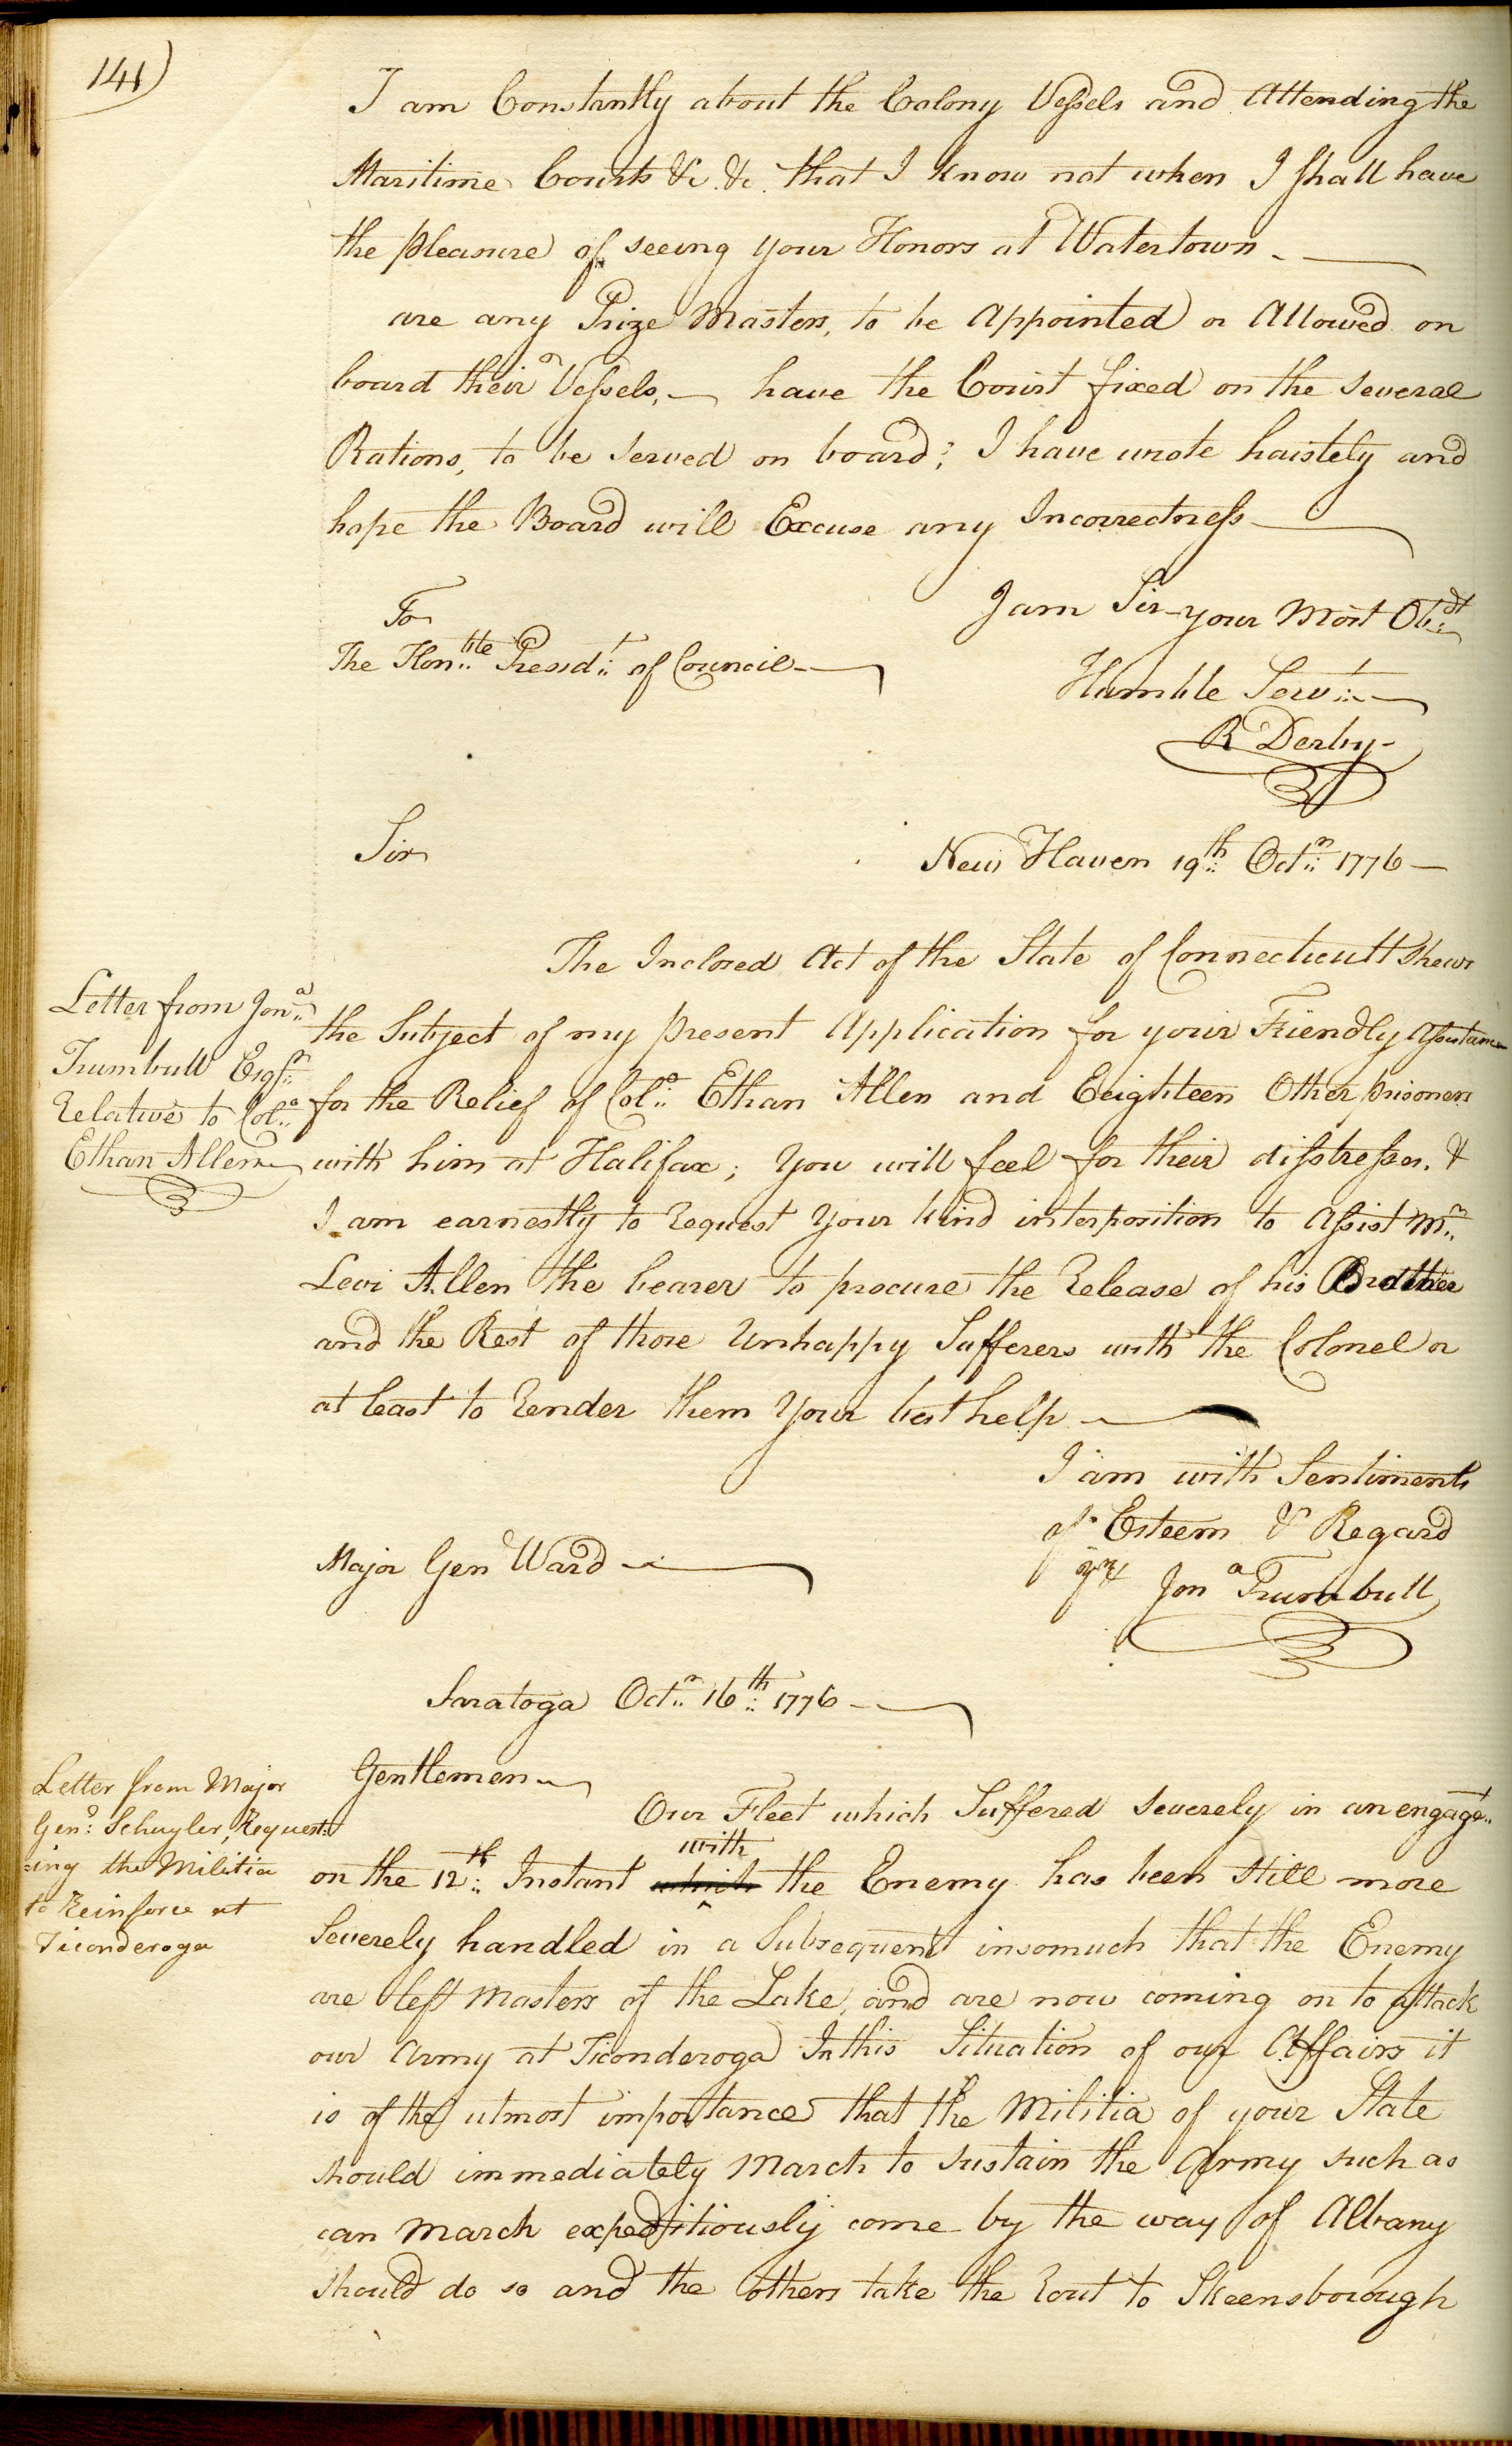 141)
I am Constantly about the Colony Vessels and Attending the
Maritime Courts &c. &c. that I know not when I shall have
the pleasure of seeing your Honors at Watertown -
are any Prize Masters, to be Appointed or Allowed on
board their Vessels, — have the Court fixed on the several
Rations, to be served on board; I have wrote haistely and
hope the Board will Excuse any Incorrectness —
I am Sir your Most Obdt
To
The Honble Presidt of Council —
Humble Servt —
R Derby -
Sir
New Haven 19th Octr 1776 —
The Inclosed Act of the State of Connecticutt shews
Letter from Jona
Trumbull Esqr
Relative to Colo
Ethan Allen
the Subject of my present Application for your Friendly Assistance
for the Relief of Colo Ethan Allen and Eeighteen Other prisoners
with him at Halifax; You will feel for their disstresses. &
I am earnestly to Request Your kind interposition to Assist Mr
Levi Allen the bearer to procure the Release of his Brother
and the Rest of those Unhappy Sufferers with the Colonel or
at least to Render them Your best help —
I am with Sentiments
of Esteem & Regard
Major Gen Ward —
Jona Trumbull
Saratoga Octr 16th 1776 —
Letter from Major
Genl Schuyler, Request:
:ing the Militia
to Reinforce at
Ticonderoga
Gentlemen
Our Fleet which Suffered severely in an engagt
with
on the 12th Instant which the Enemy has been still more
Severely handled in a Subsequent insomuch that the Enemy
are left masters of the Lake, and are now coming on to attack
our Army at Ticonderoga In this Situation of our Affairs it
is of the utmost importance that the Militia of your State
should immediately March to sustain the Army such as
can march expeditiously come by the way of Albany
should do so and the others take the Rout to Skeensborough